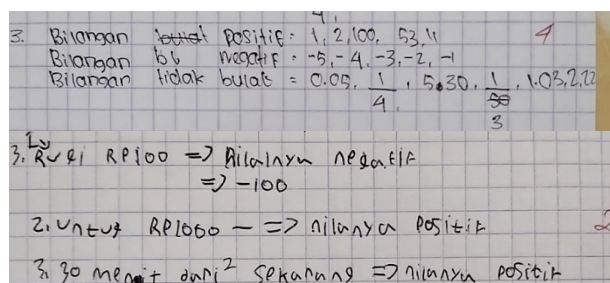 3. Bilangan positif = 1, 2, 100, 53, 11 4
Bilangan bL negatif = -5, -4, -3, -2, -1
Bilangan tidak bulat = 0.05, 1/4, 5.30, 1/3, 1.03, 2,22
3. 1. Rugi RP100 => Nilainya negatif
=> -100
2. Untug RP1000 — => nilanya Positif 2
3. 30 menit dari² sekarang => nilanya positif